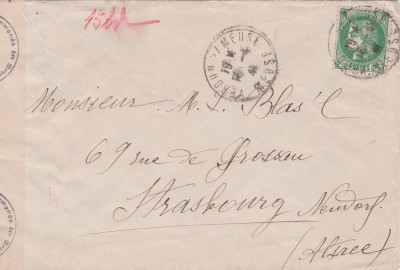 15 
VERDUN S/MEUSE
MEUSE
Monsieur M. L. Blas'l
69 rue de Grossau
Strasbourg Neudorf.
(Alsace)